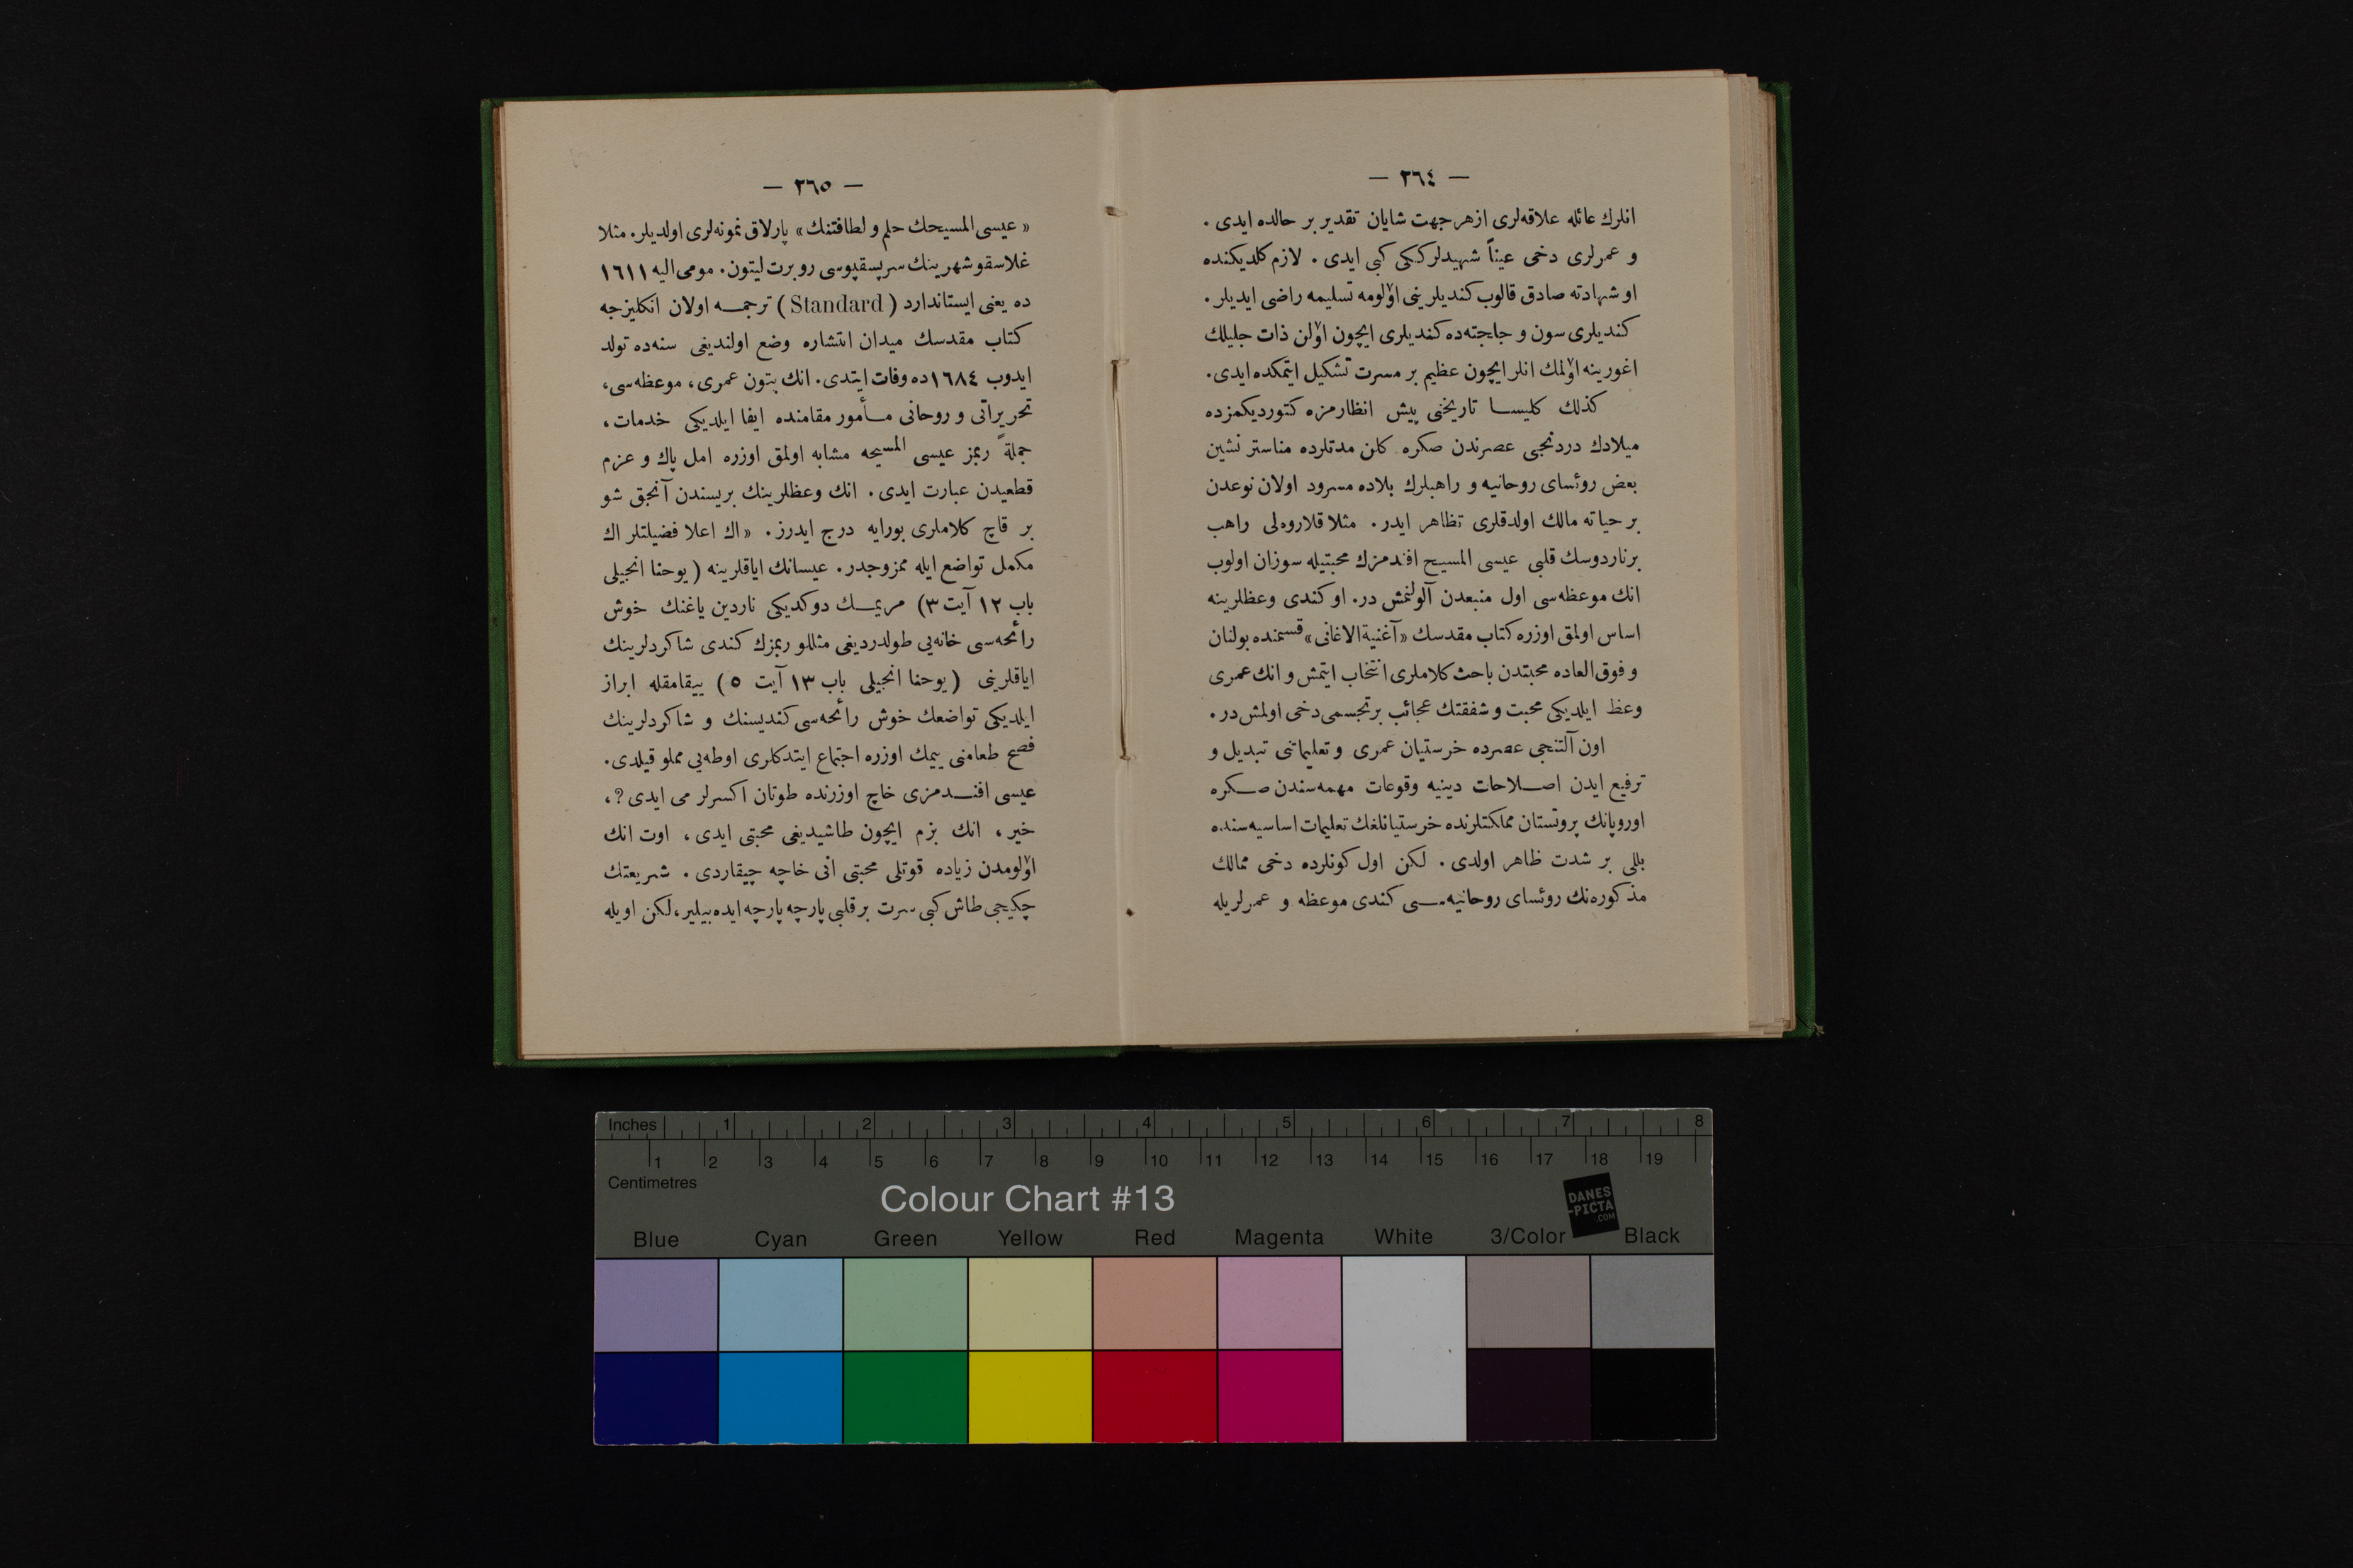 — ٣٦٤ —
انلرك عائله علاقه‌لری ازهر جهت شایان تقدیر بر حالده ایدی .
و عمرلری دخی عیناً شهیدلرككی كبی ایدی . لازم كلدیكنده
او شهادته صادق قالوب كندیلرینی اولومه تسلیمه راضی ایدیلر .
كندیلری سون و جلجته‌ده كندیلری ایچون اولن ذات جلیلك
اغورینه اولمك انلر ایچون عظیم بر مسرت تشكیل ایتمكده ایدی.
كذلك كلیسا تاریخنی پیش انظارمزه كتوردیكمزده
میلادك دردنجی عصرندن صكره كلن مدتلرده مناستر نشین
بعض رؤسای روحانیه و راهبلرك بلاده مسرود اولان نوعدن
بر حیاته مالك اولدقلری تظاهر ایدر . مثلا قلاروه‌لی راهب
برناردوسك قلبی عیسی المسیح افندمزك محبتیله سوزان اولوب
انك موعظه‌سی اول منبعدن آلولنمش در. او كندی وعظلرینه
اساس اولمق اوزره كتاب مقدسك «آغنیة الاغانی» قسمنده بولنان
و فوق العاده محبتدن باحث كلاملری انتخاب ایتمش و انك عمری
وعظ ایلدیكی محبت و شفقتك عجائب برتجسمی دخی اولمش در .
اون آلتنجی عصرده خرستیان عمری و تعلیماتنی تبدیل و
ترفیع ایدن اصلاحات دینیه وقوعات مهمه‌سندن صكره
اوروپانك پروتستان مملكتلرنده خرستیانلغك تعلیمات اساسیه‌سنده
بللی بر شدت ظاهر اولدی . لكن اول كونلرده دخی ممالك
مذكوره‌نك رؤسای روحانیه‌سی كندی موعظه و عمرلریله
— ٣٦٥ —
« عیسی المسیحك حلم و لطافتنك » پارلاق نمونه‌لری اولدیلر . مثلا
غلاسقو شهرینك سرپسقپوسی روبرت لیتون . مومی الیه ١٦١١
ده یعنی ایستاندارد ( Standard ) ترجمه اولان انكلیزجه
كتاب مقدسك میدان انتشاره وضع اولندیغی سنه‌ده تولد
ایدوب ١٦٨٤ ده وفات ایتدی . انك بتون عمری ، موعظه‌سی ،
تحریراتی و روحانی مأمور مقامنده ایفا ایلدیكی خدمات ،
جملةً ربمز عیسی المسیحه مشابه اولمق اوزره امل پاك و عزم
قطعیدن عبارت ایدی . انك وعظلرینك بریسندن آنجق شو
بر قاچ كلاملری بورایه درج ایدرز . « اك اعلا فضیلتلر اك
مكمل تواضع ایله ممزوجدر . عیسانك ایاقلرینه ( یوحنا انجیلی
باب ١٢ آیت ٣) مریمك دوكدیكی ناردین یاغنك خوش
رائحه‌سی خانه‌یی طولدردیغی مثللو ربمزك كندی شاكردلرینك
ایاقلرینی ( یوحنا انجیلی باب ١٣ آیت ٥ ) ییقامقله ابراز
ایلدیكی تواضعك خوش رائحه‌سی كندیسنك و شاكردلرینك
فصح طعامنی ییمك اوزره اجتماع ایتدكلری اوطه‌یی مملو قیلدی .
عیسی افندمزی خاچ اوزرنده طوتان اكسرلر می ایدی ؟ ،
خیر ، انك بزم ایچون طاشیدیغی محبتی ایدی ، اوت انك
اولومدن زیاده قوتلی محبتی انی خاچه چیقاردی . شریعتك
چكیجی طاش كبی سرت بر قلبی پارچه پارچه ایده‌بیلیر ، لكن اویله
Inches 1 2 3 4 5 6 7 8
1 2 3 4 5 6 7 8 9 10 11 12 13 14 15 16 17 18 19
Centimetres
Colour Chart #13
DANES
-PICTA
.COM
Blue Cyan Green Yellow Red Magenta White 3/Color Black